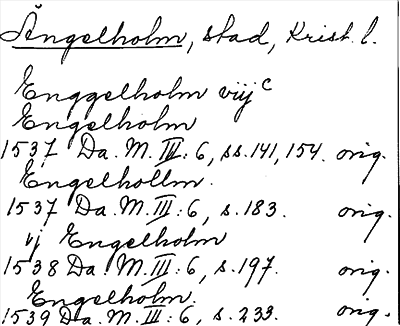 Ängelholm, stad, Krist. l.
Enggelholm viijc
Engelholm
1537 Da. M. III: 6, ss. 141, 154. orig.
Engelhollm.
1537 Da. M. III: 6, s. 183. orig.
vj Engelholm
1538 Da. M. III: 6, s. 197. orig.
Engelholm.
1539 Da. M. III: 6, s. 233. orig.